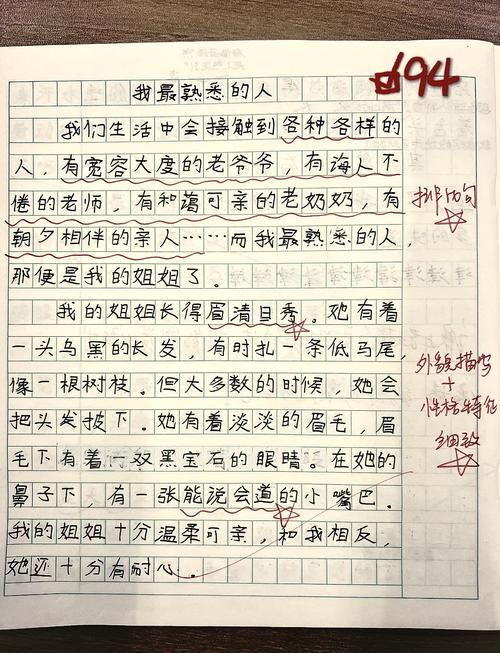 94
我最熟悉的人
我们生活中会接触到各种各样的
人，有宽容大度的老爷爷，有诲人不
倦的老师，有和蔼可亲的老奶奶，有
朝夕相伴的亲人……而我最熟悉的人，
那便是我的姐姐了。
排比句
我的姐姐长得眉清目秀。她有着
一头乌黑的长发，有时扎一条低马尾，
像一根树枝。但大多数的时候，她会
把头发披下。她有着淡淡的眉毛，眉
毛下有着一双黑宝石的眼睛。在她的
鼻子下，有一张能说会道的小嘴巴。
我的姐姐十分温柔可亲，和我相反，
她还十分有耐心。
外貌描写
+
性格特征
细致